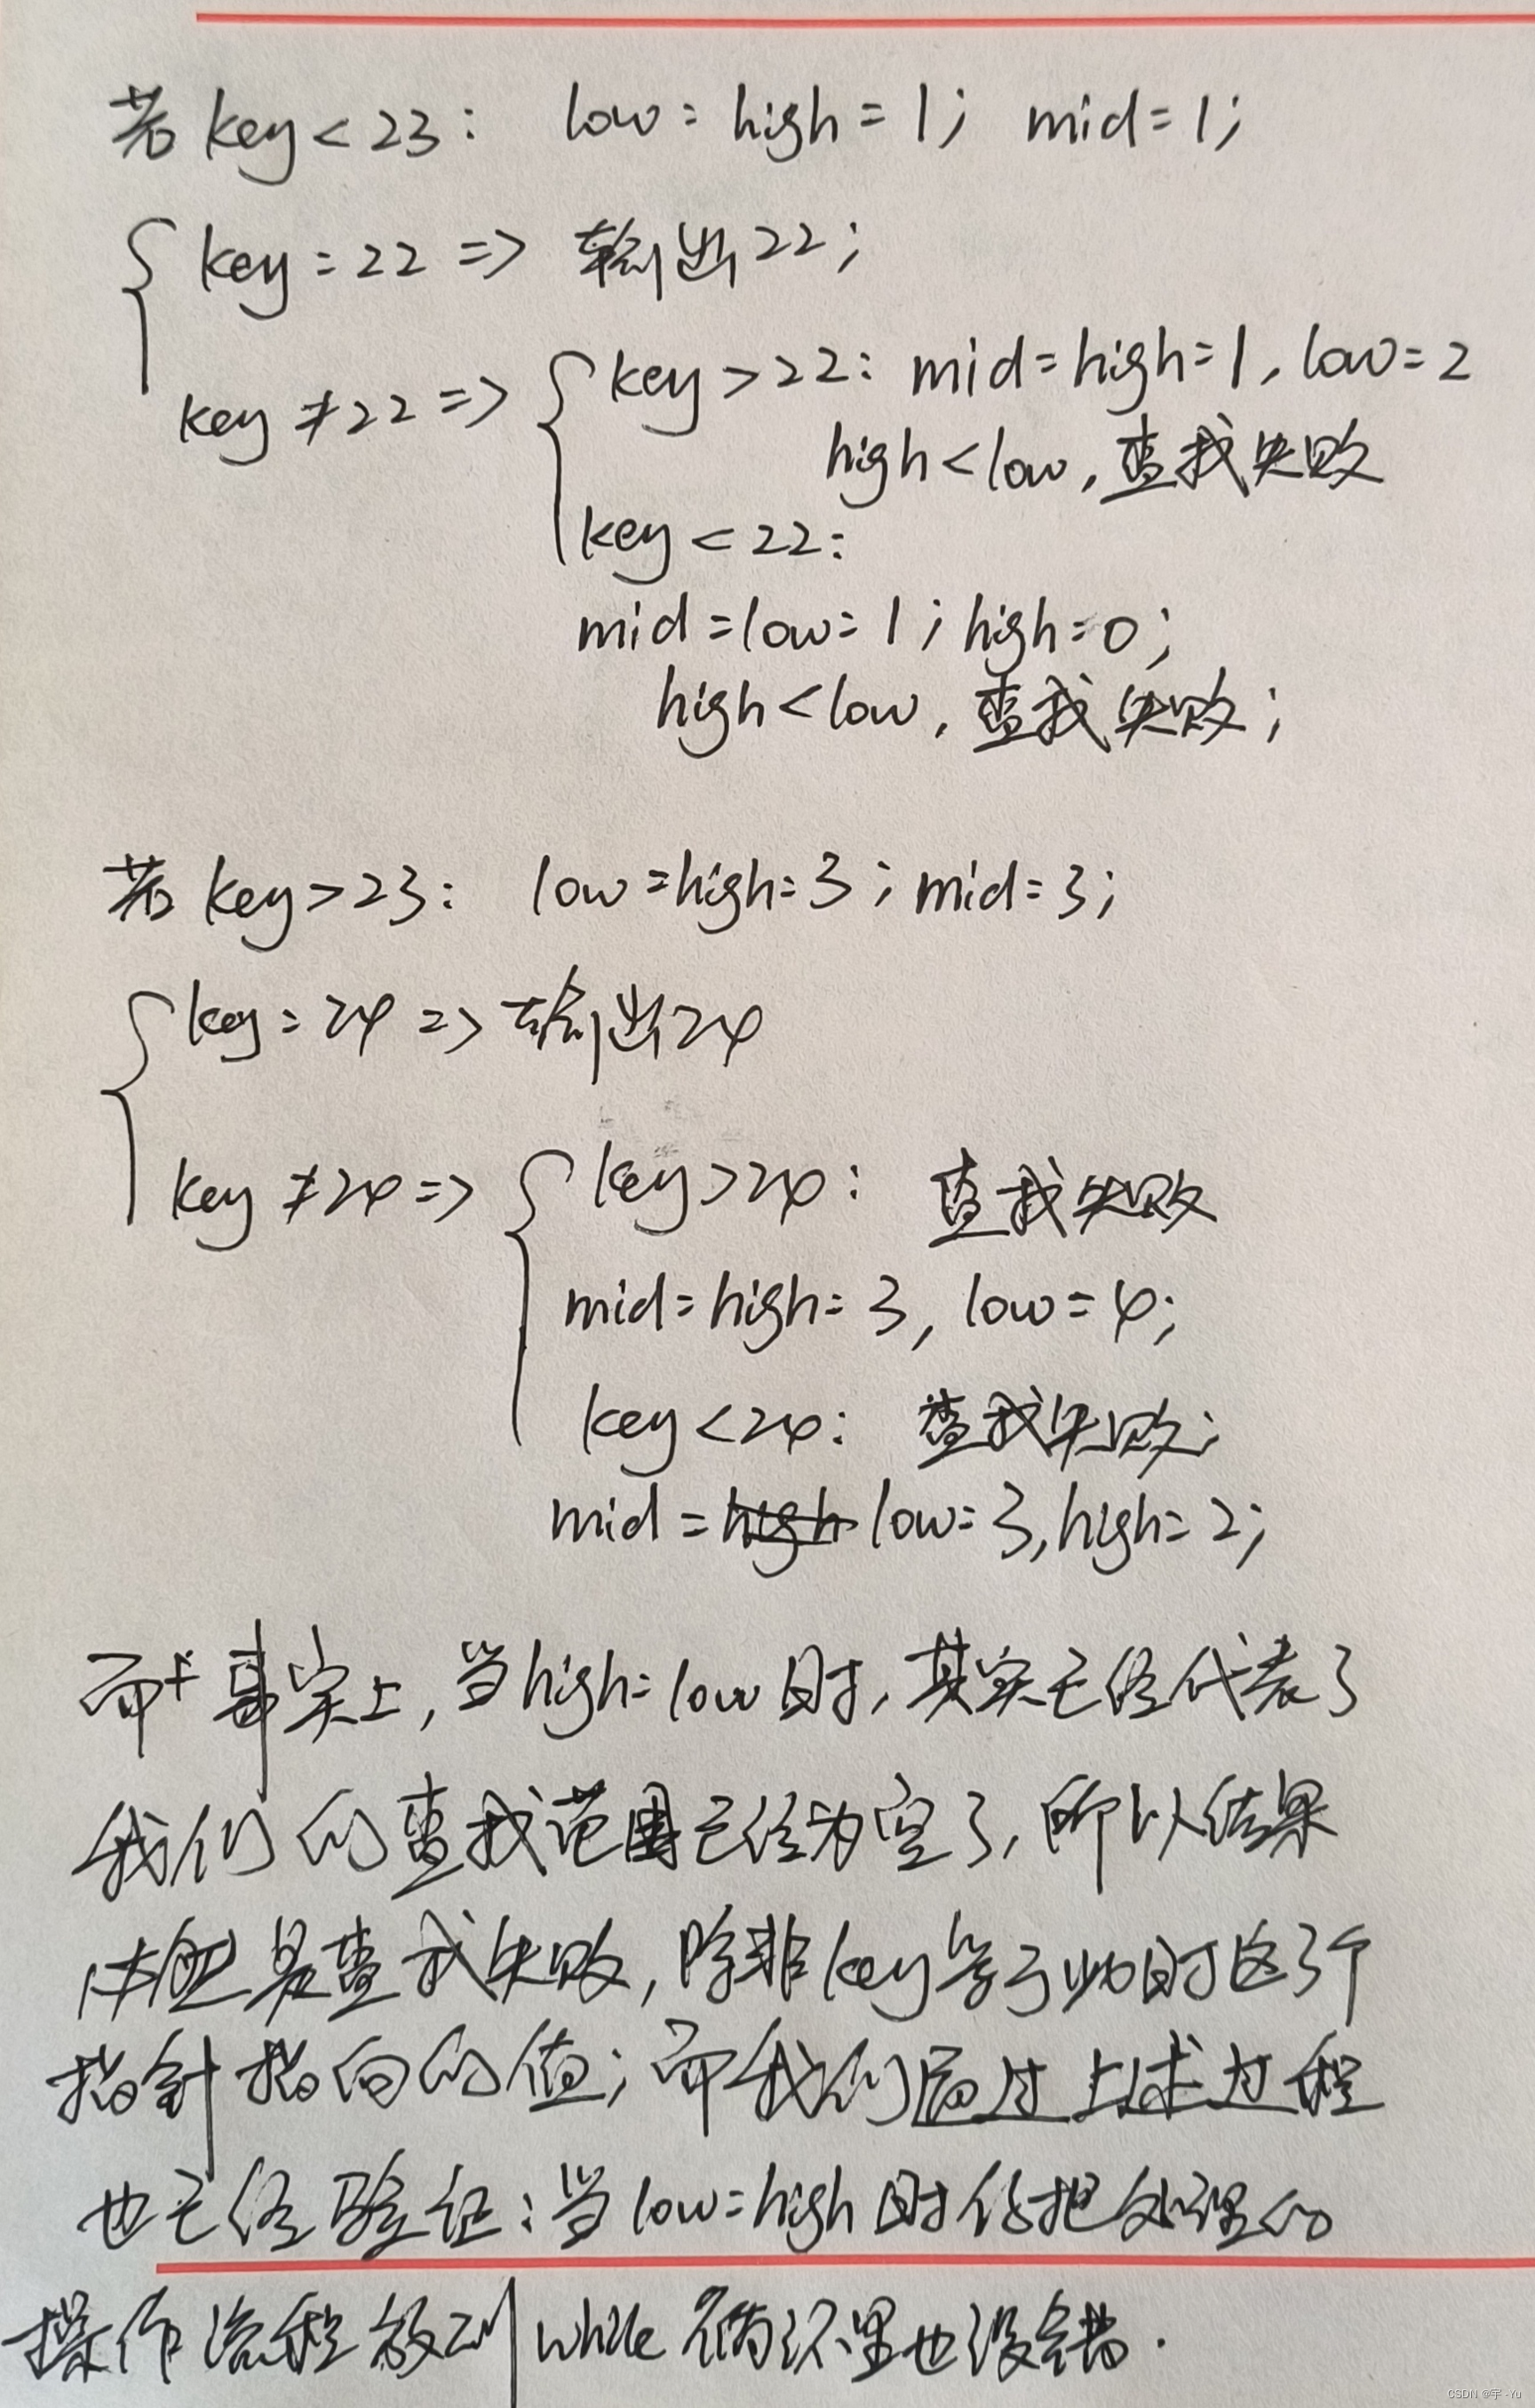 若 key < 23: low = high = 1; mid = 1;
key = 22 => 输出22;
key ≠ 22 => key > 22: mid = high = 1, low = 2
high < low, 查找失败
key < 22:
mid = low = 1; high = 0;
high < low, 查找失败;
若 key > 23: low = high = 3; mid = 3;
key = 24 => 输出24
key ≠ 24 => key > 24: 查找失败
mid = high = 3, low = 4;
key < 24: 查找失败;
mid = low = 3, high = 2;
而事实上, 当 high = low 时, 其实已经代表了
我们的查找范围已经为空了, 所以结果
必然是查找失败, 除非 key 等于此时这个
指针指向的值; 而我们通过上述过程
也已经验证: 当 low = high 时你把处理的
操作流程放到 while 循环里也没错.
CSDN @宇-Yu